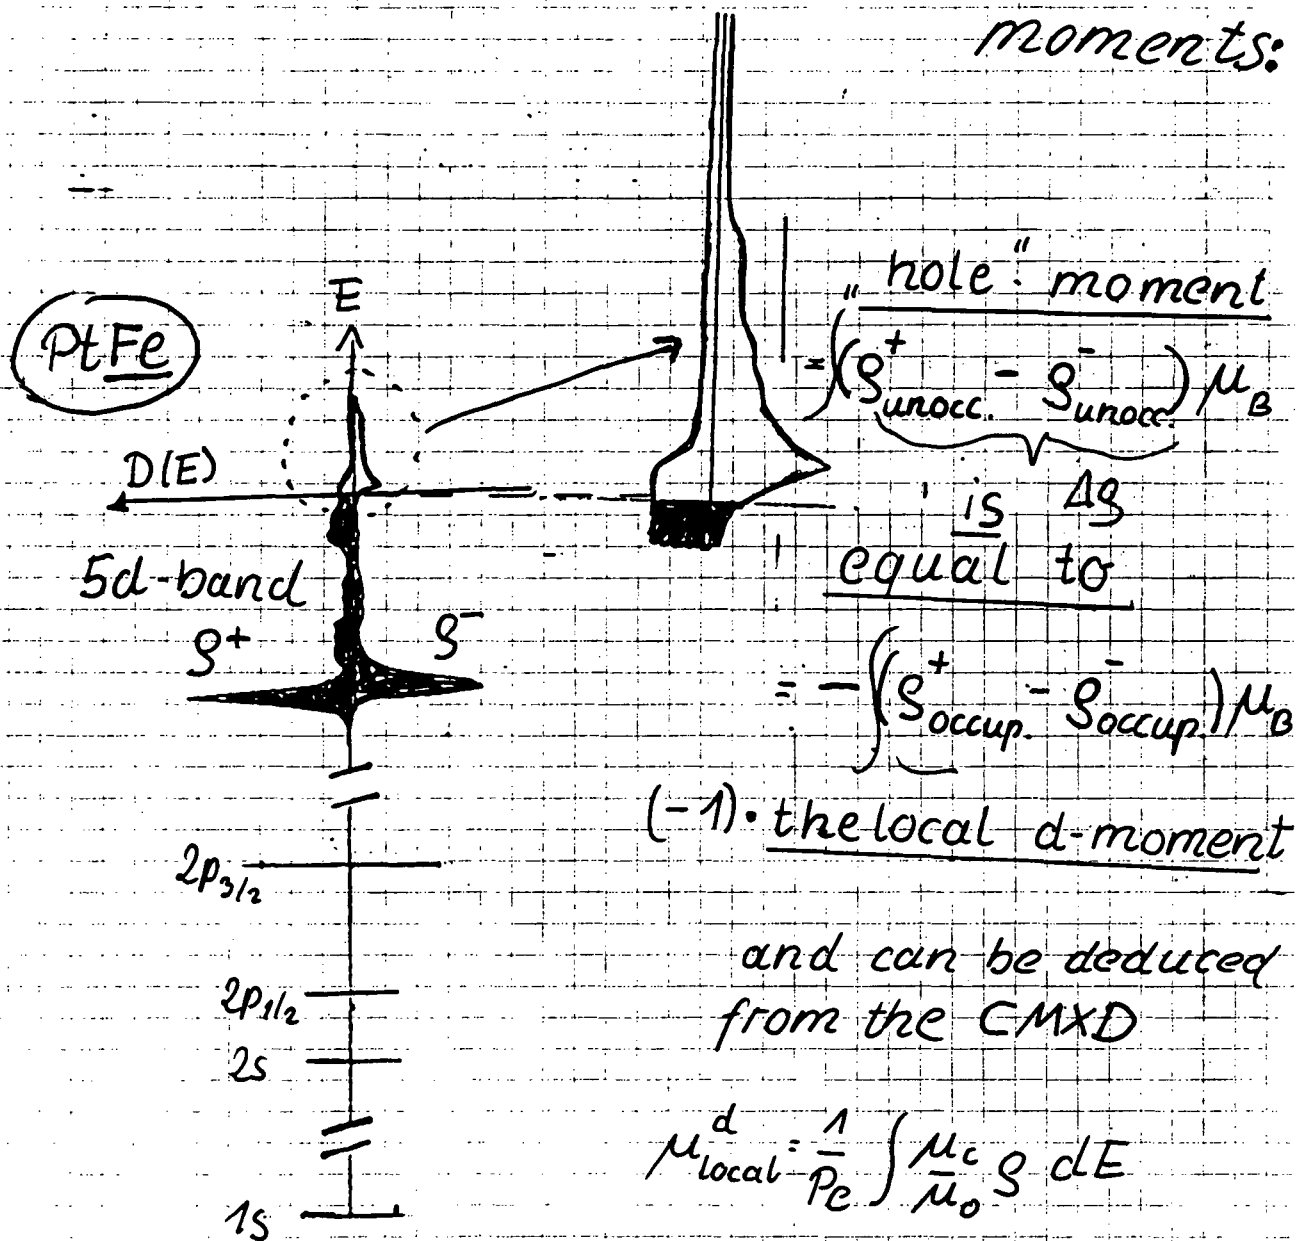 moments:
PtFe
E
D(E)
5d-band
ρ+ ρ-
2p3/2
2p1/2
2s
1s
"hole" moment
= ∫(ρ+unocc. - ρ-unocc.) μB
is Δρ
equal to
= -∫(ρ+occup. - ρ-occup.) μB
(-1)· the local d-moment
and can be deduced
from the CMXD
μdlocal = 1/Pe ∫ μc/μo ρ dE